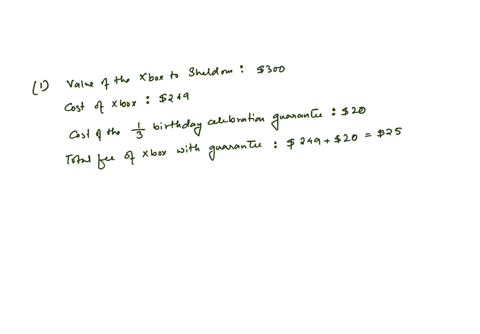 (1) Value of the Xbox to Sheldom : $300
Cost of Xbox : $249
Cost of the 1/3 birthday celebration guarantee : $20
Total fee of Xbox with guarantee : $249 + $20 = $25